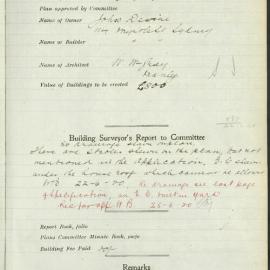 Plan approved by Committee
Name of Owner John Devine
Myrtle St Sydney
Name of Builder
Name of Architect W W Gray
Manly
Value of Buildings to be erected £800
Building Surveyor's Report to Committee
No drainage shewn on plan.
There are stables shewn on the plan, but not
mentioned in the application. E.C. shewn
under the house roof which cannot be allowed
22-6-20 Re drainage see last page
of specification, E.C. put in yard
Rec for app. 25-6-20
Report Book, folio
Plans Committee Minute Book, page
Building Fee Paid
Remarks